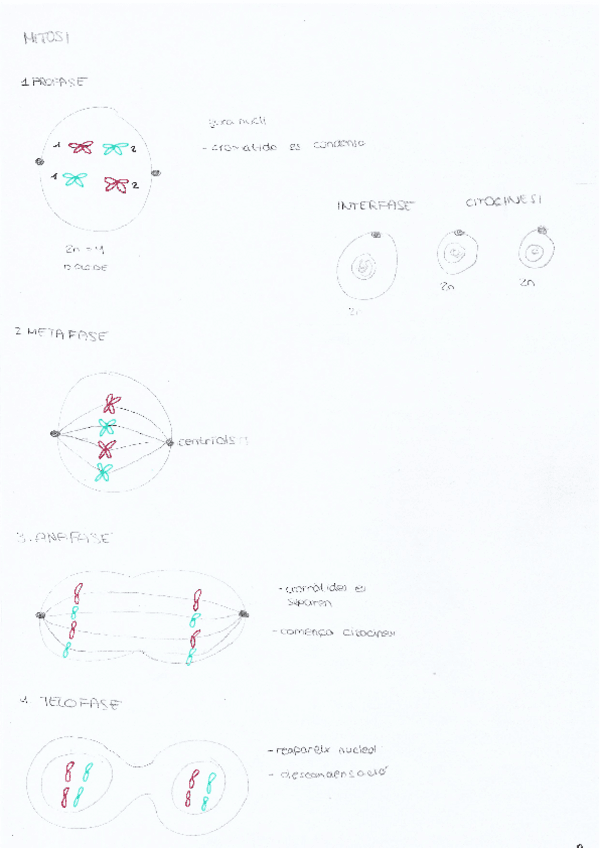 MITOSI
1 PROFASE
nucli
- cromàtide es condensa
1
2
1
2
2n = 4
INTERFASE
CITOCINESI
2n
2n
2n
2 METAFASE
centriols
3. ANAFASE
- cromàtides es
separen
- comença citocinesi
4 TELOFASE
- reapareix nucleol